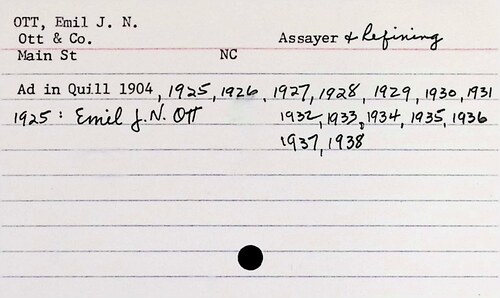 OTT, Emil J. N.
Ott & Co. Assayer & Refining
Main St NC
Ad in Quill 1904, 1925, 1926, 1927, 1928, 1929, 1930, 1931
1925: Emil J.N. Ott 1932, 1933, 1934, 1935, 1936
1937, 1938